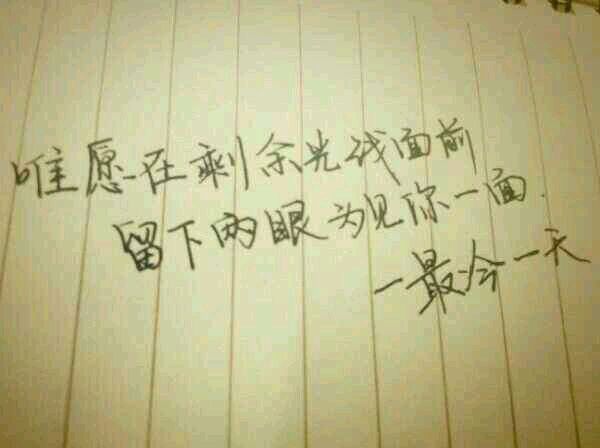 唯愿在剩余光线面前
留下两眼为见你一面.
一最会一天